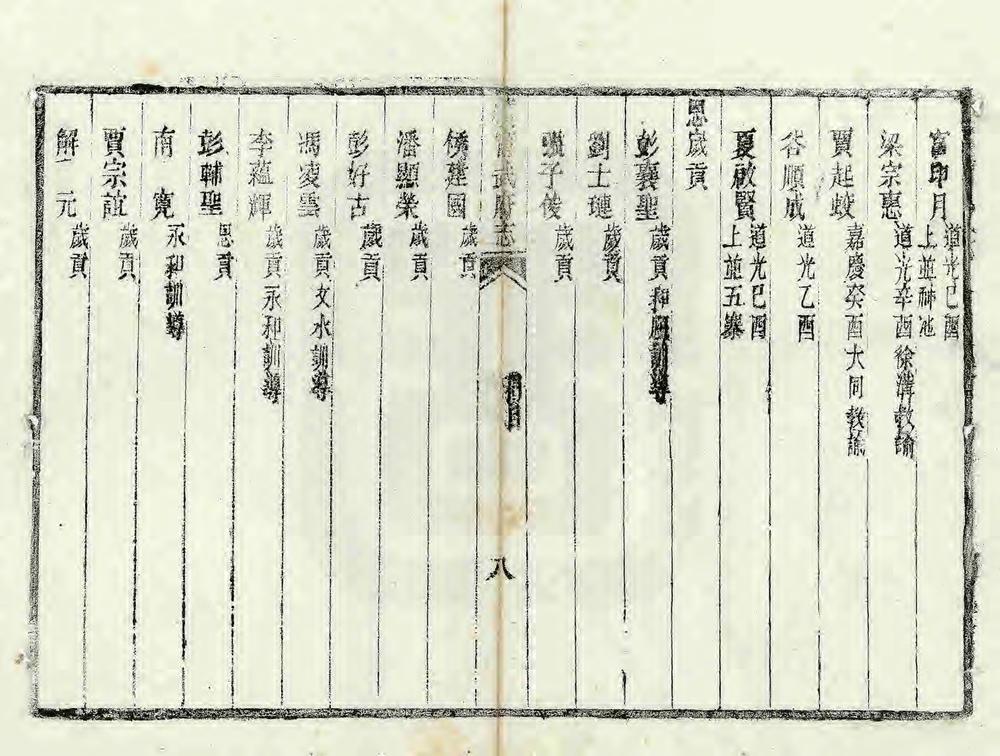 甯印月 道光己酉 上並神池
梁宗惠 道光辛酉徐溝教諭
賈起蛟 嘉慶癸酉大同教諭
谷順成 道光乙酉
夏啟賢 道光己酉 上並五寨
恩歲貢
彭襄聖 歲貢和順訓導
劉士璉 歲貢
子俊 歲貢
甯武府志
八
建國 歲貢
潘顯榮 歲貢
彭好古 歲貢
馮凌雲 歲貢文水訓導
李蘊輝 歲貢永和訓導
彭輔聖 恩貢
南寬 永和訓導
賈宗誼 歲貢
解元 歲貢